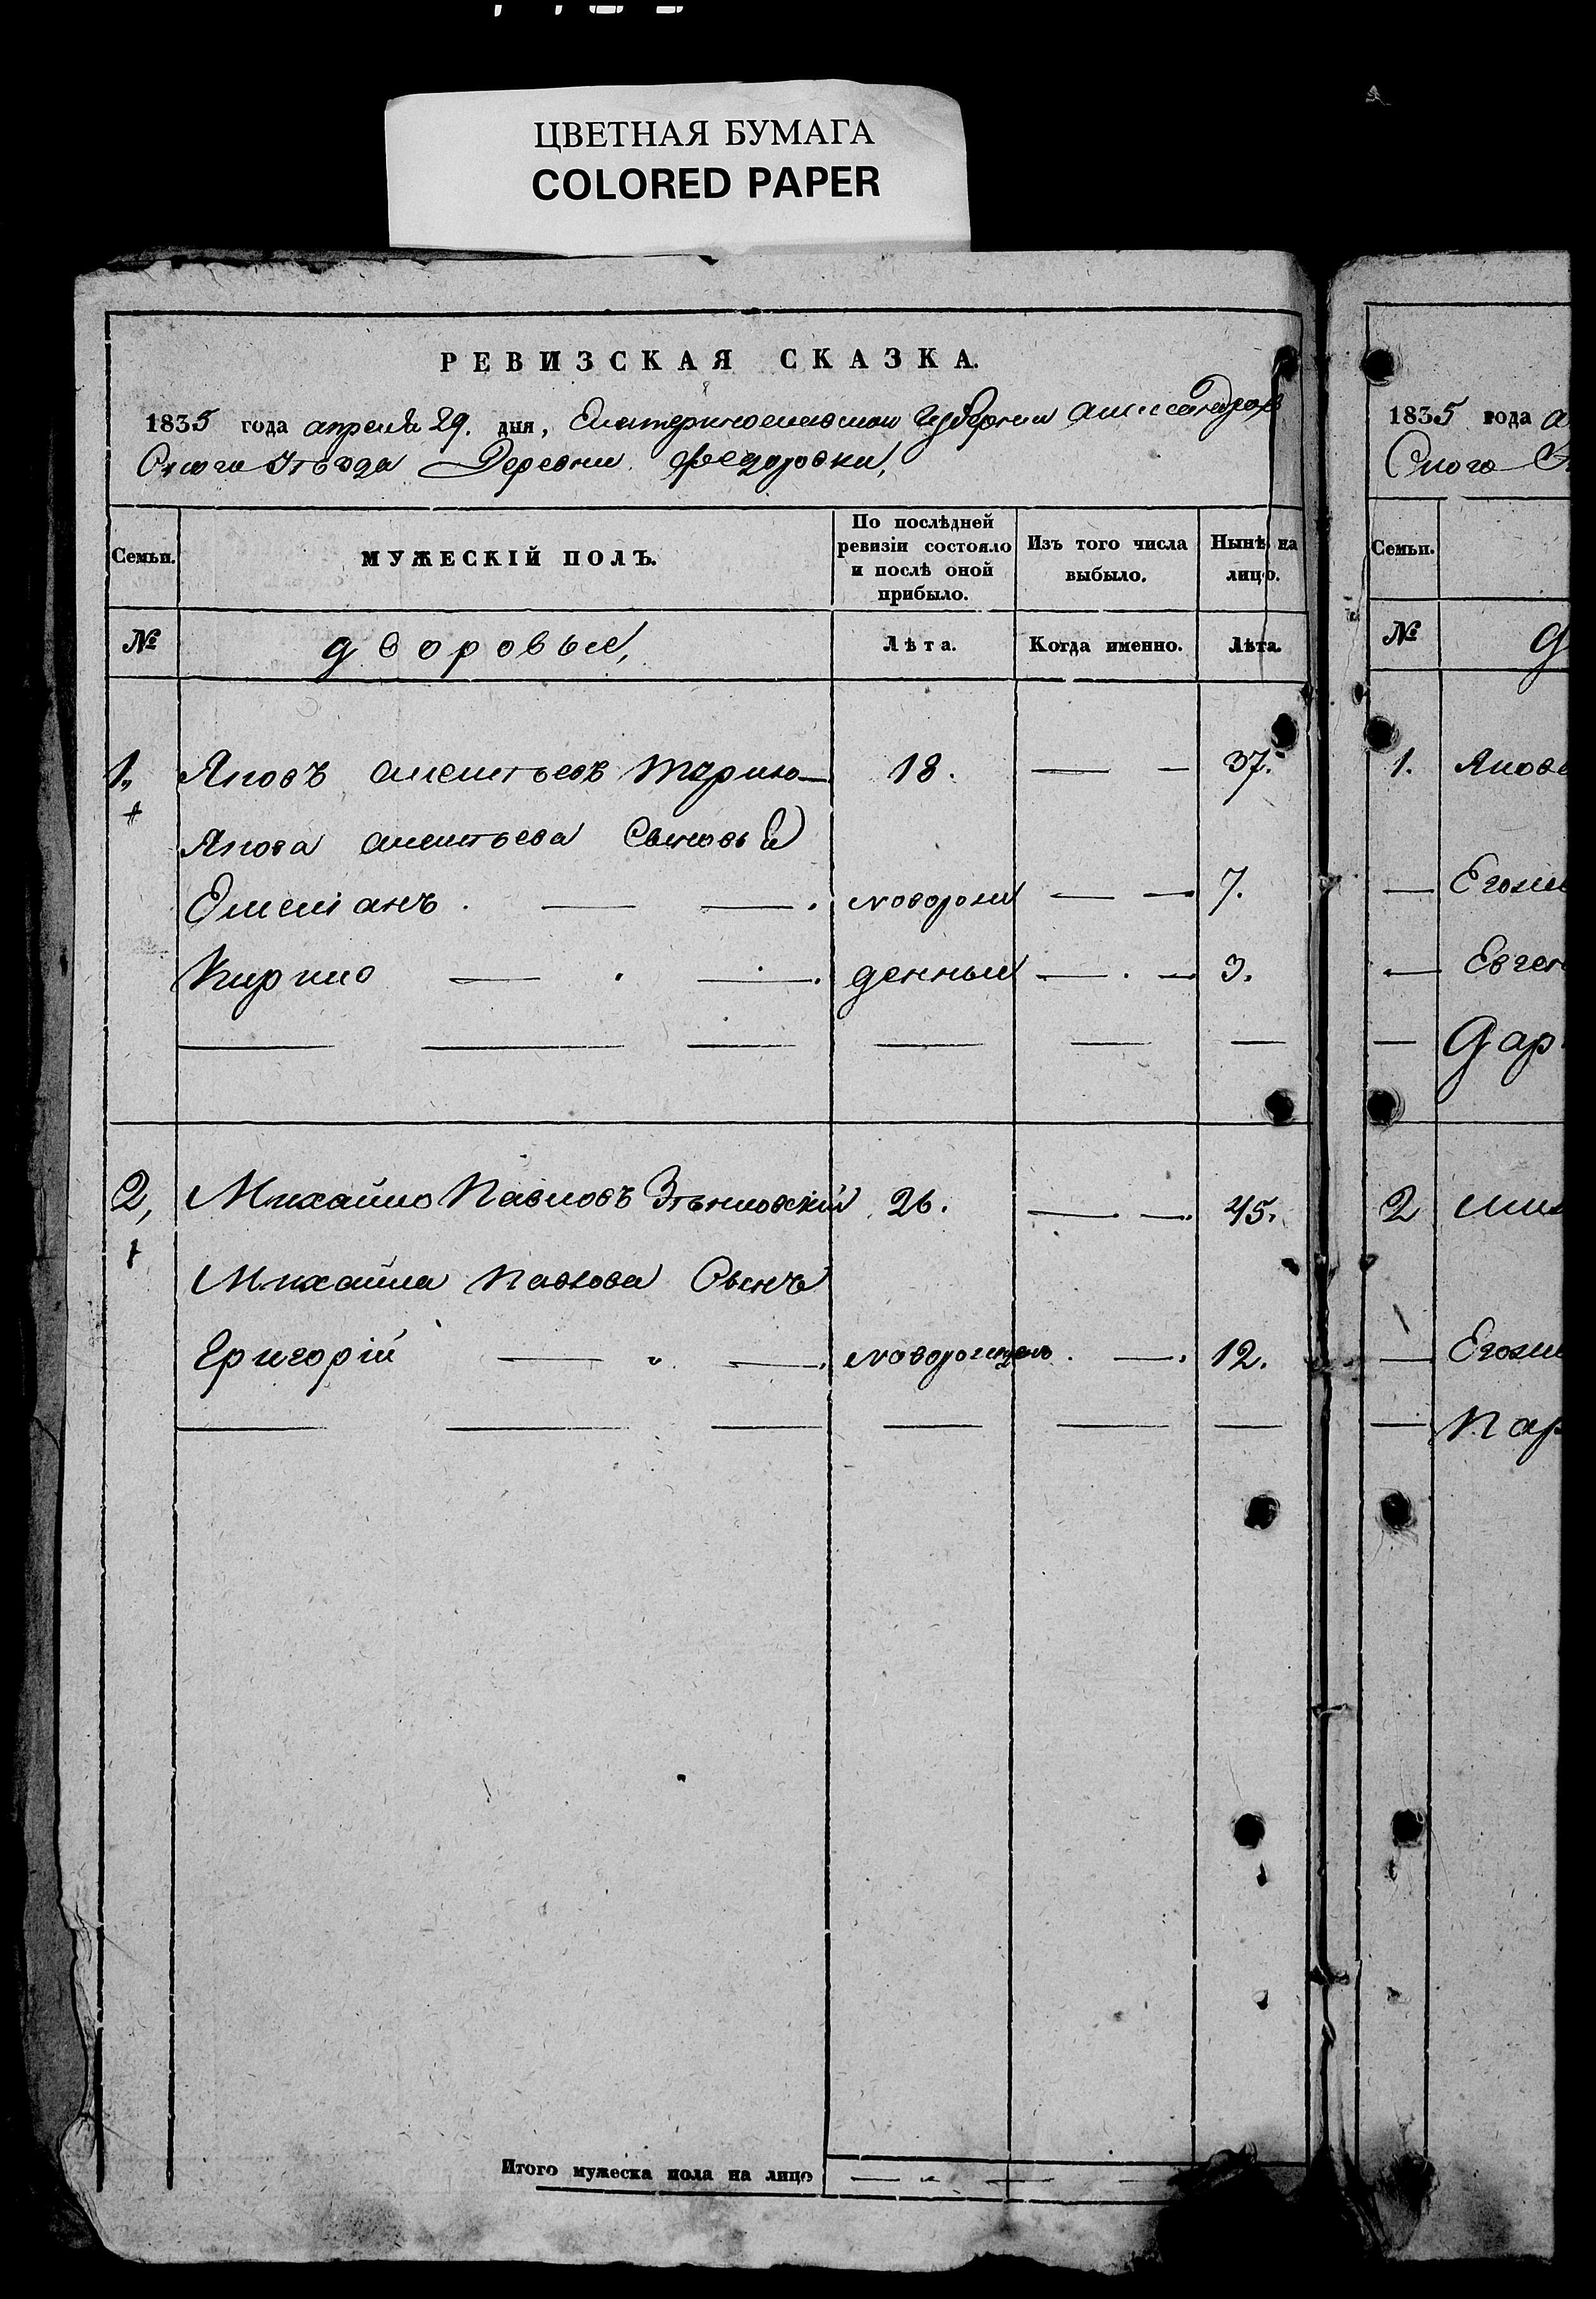 ЦВЕТНАЯ БУМАГА
COLORED PAPER
РЕВИЗСКАЯ СКАЗКА.
1835 года апреля 29. дня, Екатеринославской Губернии Александров
Скаго Уѣзда Деревни Федоровки,
Семьи.
МУЖЕСКІЙ ПОЛЪ.
По послѣдней ревизіи состояло и послѣ оной прибыло.
Изъ того числа выбыло.
Нынѣ на лицо.
№
дворовые,
Лѣта.
Когда именно.
Лѣта.
1. Яковъ 18. 37.
Якова Сыновья
Емеліанъ новорож 7.
Кирило денные 3.
2, Михайло Павловъ 26. 45.
Михайла Павлова Сынъ
Григорій новорожденъ 12.
Итого мужеска пола на лицо
1835 года а
Скаго
Семьи.
№ д
1. Якове
Евген
Дар
2 Мих
Пар